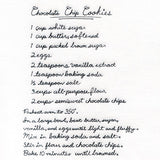 Chocolate Chip Cookies
1 cup white sugar
1 cup butter, softened
1 cup packed brown sugar
2 eggs
2 teaspoons vanilla extract
1 teaspoon baking soda
½ teaspoon salt
3 cups all-purpose flour
2 cups semisweet chocolate chips
Preheat oven to 350°.
In a large bowl, beat butter, sugar,
vanilla, and eggs until light and fluffy.
Mix in baking soda and salt.
Stir in flour and chocolate chips.
Bake 10 minutes until browned.